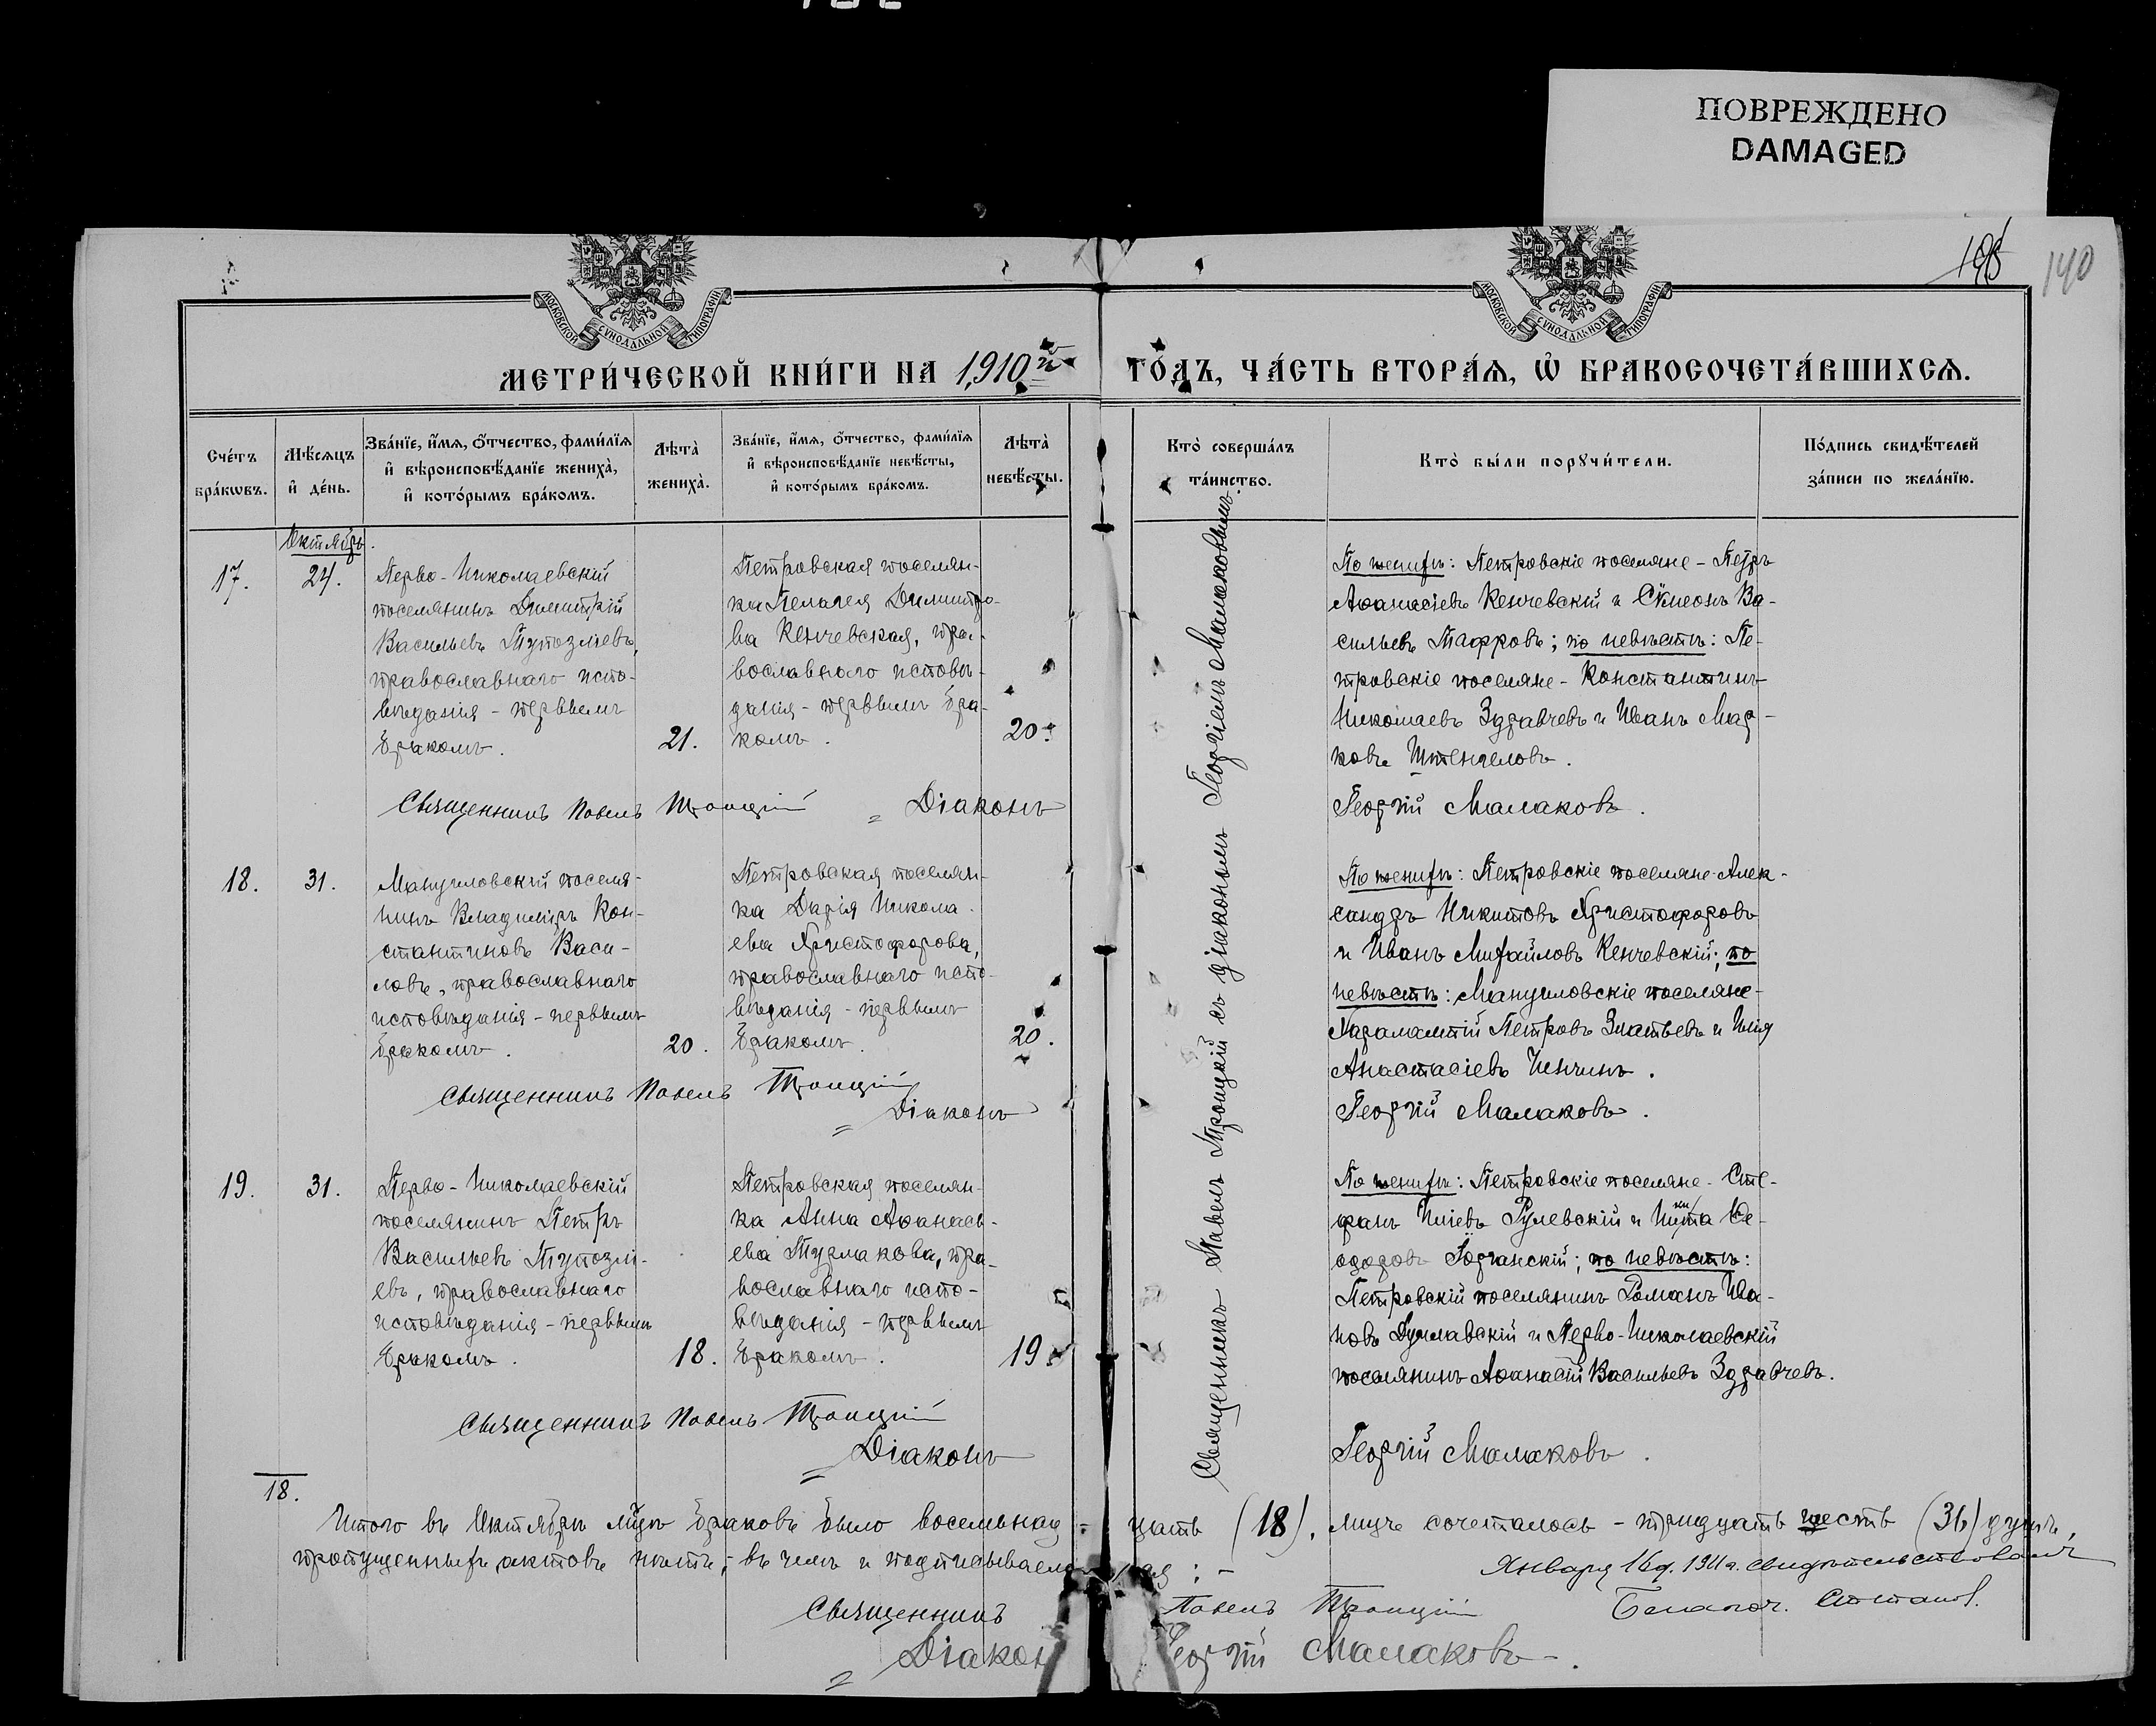 ПОВРЕЖДЕНО
DAMAGED
140
МОСКОВСКОЙ СѴНОДАЛЬНОЙ ТИПОГРАФІИ
МОСКОВСКОЙ СѴНОДАЛЬНОЙ ТИПОГРАФІИ
МЕТРИ́ЧЕСКОЙ КНИ́ГИ НА 1910й ГО́ДЪ, ЧА́СТЬ ВТОРА́Я, Ѽ БРАКОСОЧЕТА́ВШИХСЯ.
Сче́тъ бра́кѡвъ.
Мѣ́сяцъ и҆ де́нь.
Зва́нїе, и҆́мя, ѻ҆́тчество, фами́лїя
и҆ вѣроисповѣ́данїе жениха̀,
и҆ кото́рымъ бра́комъ.
Лѣта̀ жениха̀.
Зва́нїе, и҆́мя, ѻ҆́тчество, фами́лїя
и҆ вѣроисповѣ́данїе невѣ́сты,
и҆ кото́рымъ бра́комъ.
Лѣта̀ невѣ́сты.
Кто̀ соверша́лъ та́инство.
Кто̀ бы́ли порꙋчи́тели.
По́дпись свидѣ́телей
за́писи по жела́нїю.
Октябрь.
17.
24.
Перво-Николаевскій
поселянинъ Димитрій
Васильевъ Тупозліевъ,
православнаго испо-
вѣданія - первымъ
бракомъ.
21.
Петровская поселян-
ка Пелагея Димитро-
ва Кенчевская, пра-
вославнаго исповѣ-
данія - первымъ бра-
комъ.
20.
По женихѣ: Петровскіе поселяне - Петръ
Аѳанасіевъ Кенчевскій и Сѵмеонъ Ва-
сильевъ Тафровъ; по невѣстѣ: Пе-
тровскіе поселяне - Константинъ
Николаевъ Здравчевъ и Иванъ Мар-
ковъ Штенгеловъ.
Священникъ Павелъ Троицкій
Діаконъ Георгій Малаковъ.
18.
31.
Мануиловскій поселя-
нинъ Владиміръ Кон-
стантиновъ Васи-
ловъ, православнаго
исповѣданія - первымъ
бракомъ.
20.
Петровская поселян-
ка Дарія Никола-
ева Христофорова,
православнаго испо-
вѣданія - первымъ
бракомъ.
20.
По женихѣ: Петровскіе поселяне - Алек-
сандръ Никитовъ Христофоровъ
и Иванъ Михайловъ Кенчевскій; по
невѣстѣ: Мануиловскіе поселяне -
Харалампій Петровъ Златьевъ и Илія
Анастасіевъ Ченчинъ.
Священникъ Павелъ Троицкій
Діаконъ Георгій Малаковъ.
19.
31.
Перво-Николаевскій
поселянинъ Петръ
Васильевъ Тупозлі-
евъ, православнаго
исповѣданія - первымъ
бракомъ.
18.
Петровская поселян-
ка Анна Аѳанась-
ева Турлакова, пра-
вославнаго испо-
вѣданія - первымъ
бракомъ.
19.
По женихѣ: Петровскіе поселяне - Сте-
фанъ Иліевъ Гулевскій и Никита Ѳе-
одоровъ Горганскій; по невѣстѣ:
Петровскій поселянинъ Романъ Ива-
новъ Дуклавскій и Перво-Николаевскій
поселянинъ Аѳанасій Васильевъ Здравчевъ.
Священникъ Павелъ Троицкій
Діаконъ Георгій Малаковъ.
Священникъ Павелъ Троицкій съ діакономъ Георгіемъ Малаковымъ.
18.
Итого въ Октябрѣ м-цѣ браковъ было восемьнад-цать (18), лицъ сочеталось - тридцать шесть (36) душъ,
пропущенныхъ актовъ нѣтъ, въ чемъ и подписываемся: -
Января 16 д. 1911 г. свидѣтельствовалъ
Благоч. Стотанов.
Священникъ Павелъ Троицкій
Діаконъ Георгій Малаковъ.